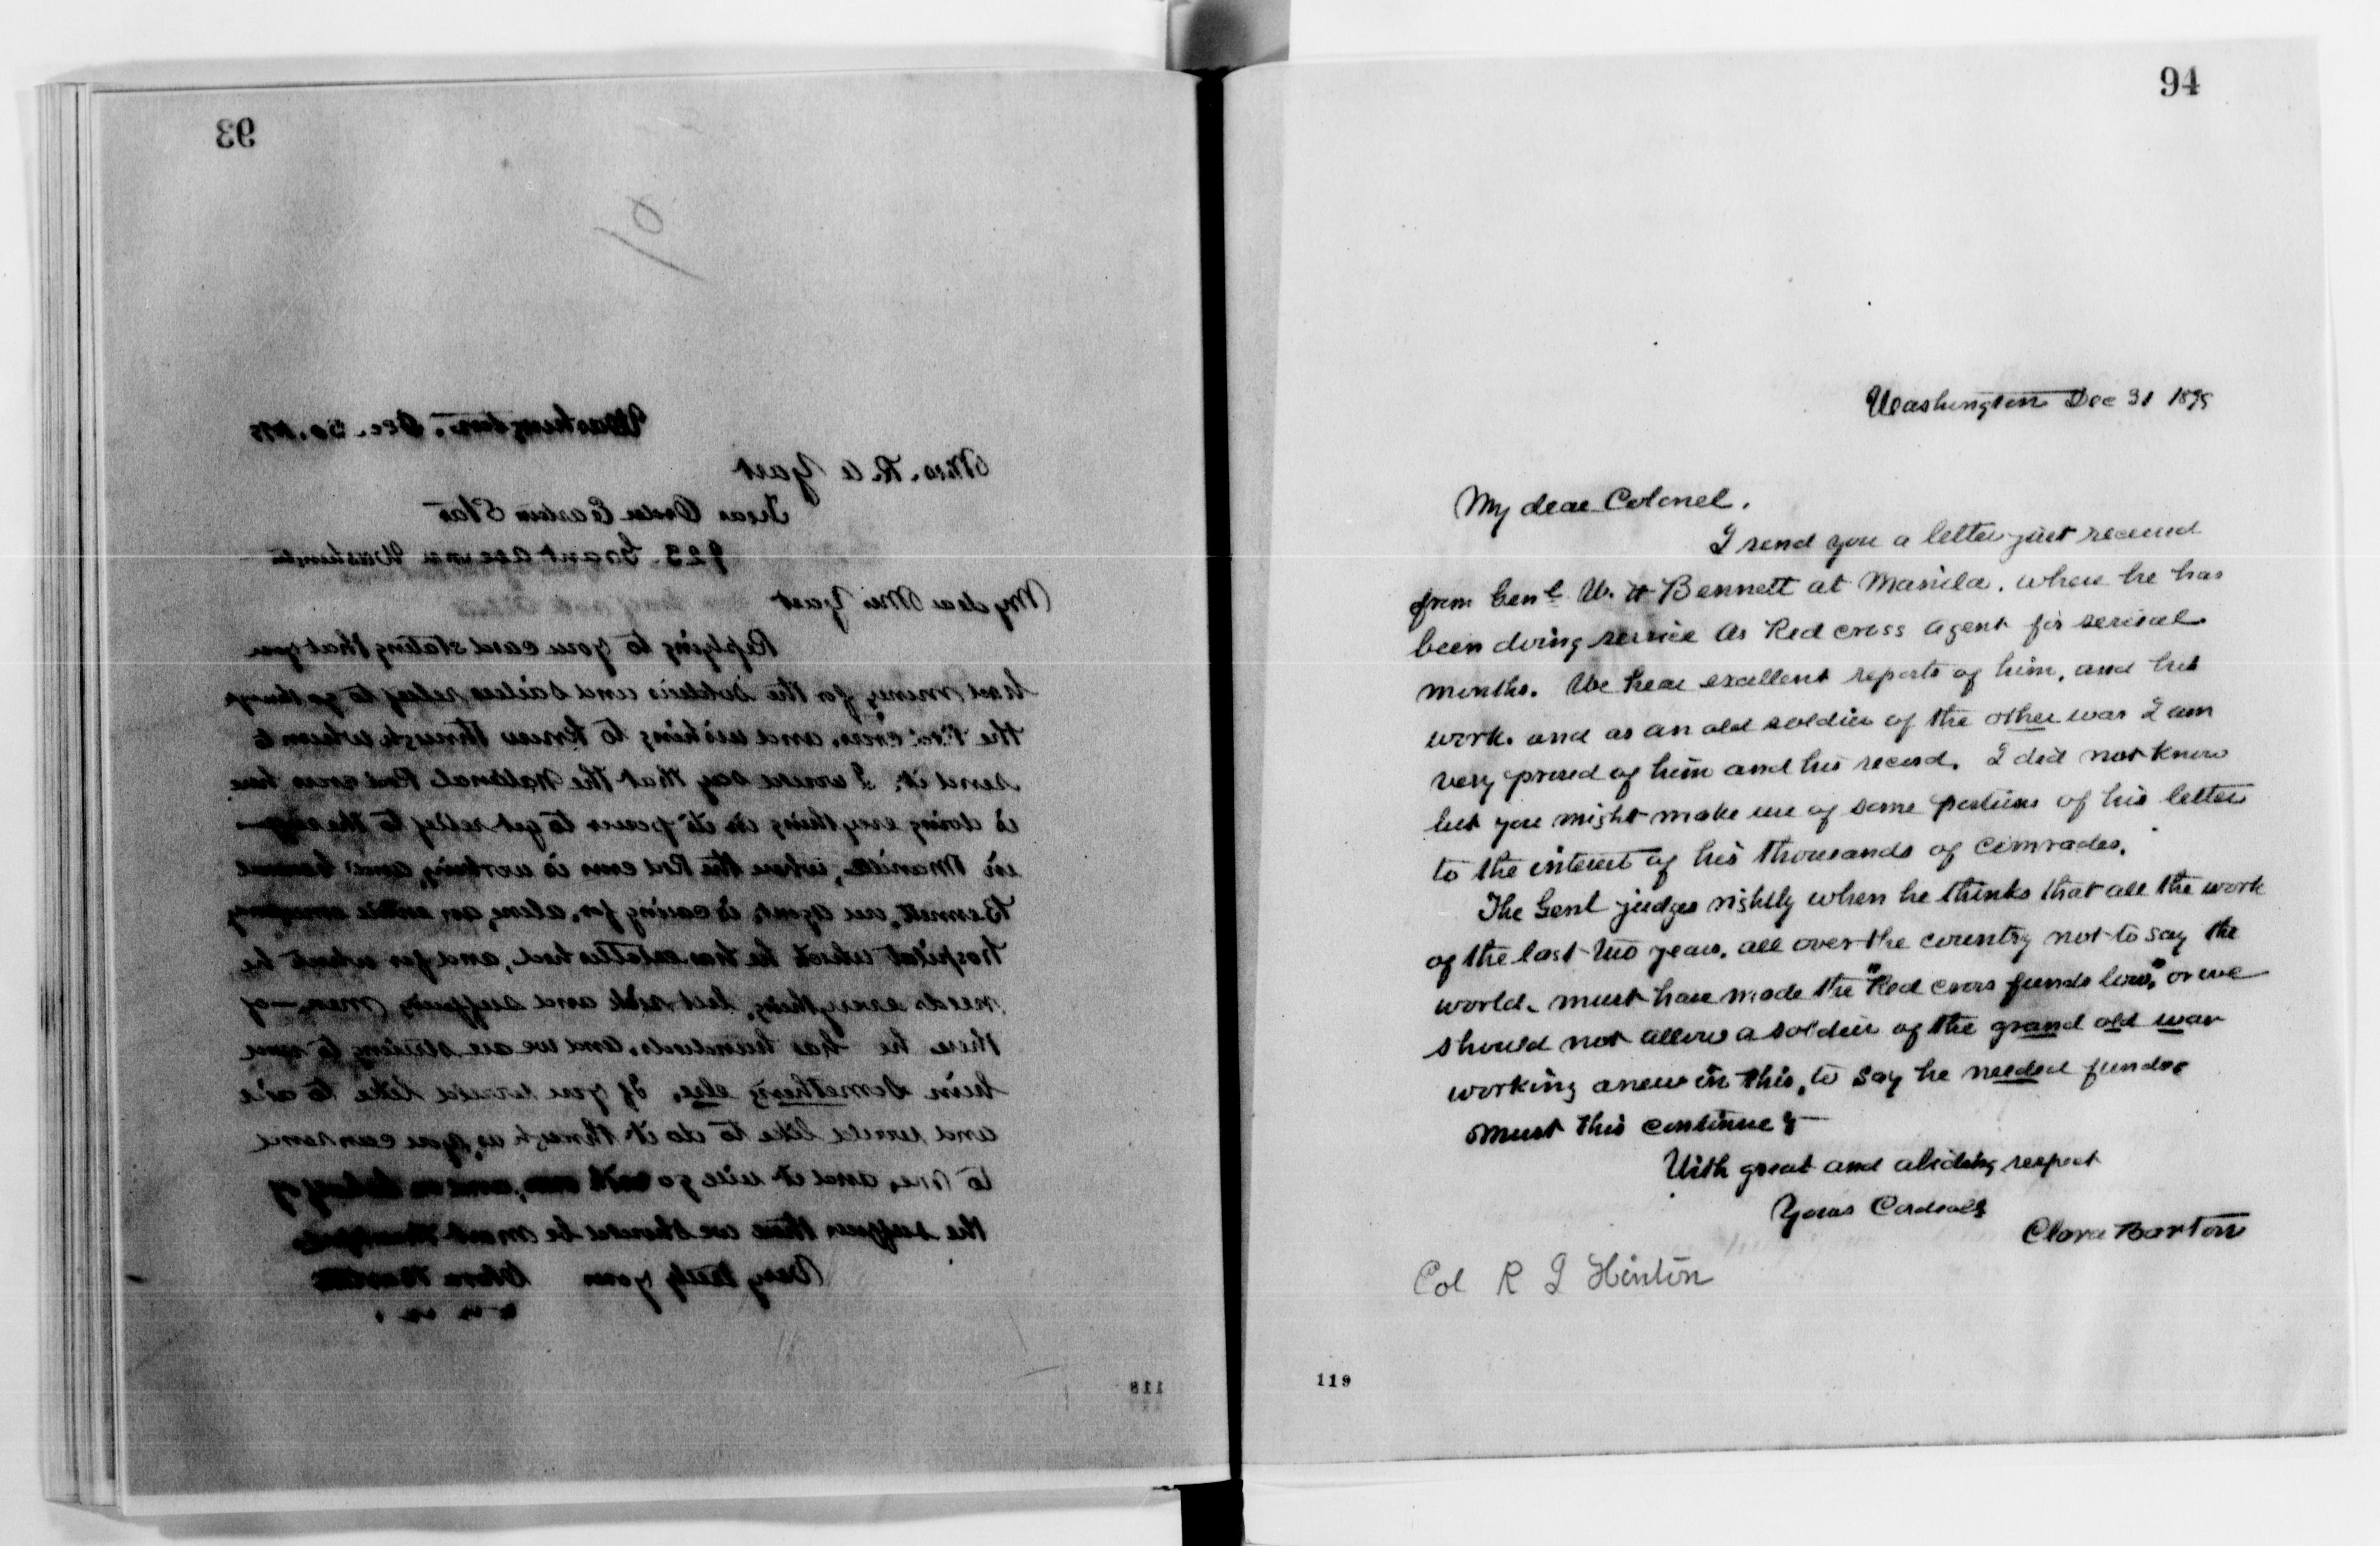 93
Washington, Dec. 30.
Mrs. R. A Yart
Treas Order Eastern Star
923. Grant avenue Washington
My dear Mrs Yart
Replying to your card stating that you
had money for the soldiers and sailors relief to go through
the Red cross, and wishing to know through whom to
send it. I would say that the National Red cross here
is doing everything in its power to get relief to the
in Manila, where the Red cross is working, and General
Bennett, our agent, is caring for, alone, an entire
hospital which he has established, and for which he
needs everything, but sick and suffering men — of
these he has hundreds, and we are striving to give
him something else. If you would like to aid
and would like to do it through us, you can send
to me, and it will go
the suffering there we should be most
Very truly yours Clara Barton
94
Washington Dec 31 1899
My dear Colonel.
I send you a letter just received
from Genl W. H Bennett at Manila. where he has
been doing service as Red cross agent for several
months. We hear excellent reports of him, and his
work. and as an old soldier of the other war I am
very proud of him and his record. I did not know
but you might make use of some portions of his letter
to the interest of his thousands of comrades.
The Genl judges rightly when he thinks that all the work
of the last two years. all over the country not to say the
world. must have made the "Red cross funds low," or we
should not allow a soldier of the grand old war
working anew in this, to say he needed funds.
Must this continue?—
With great and abiding respect
Yours Cordially
Clara Barton
Col R J Hinton
118
119